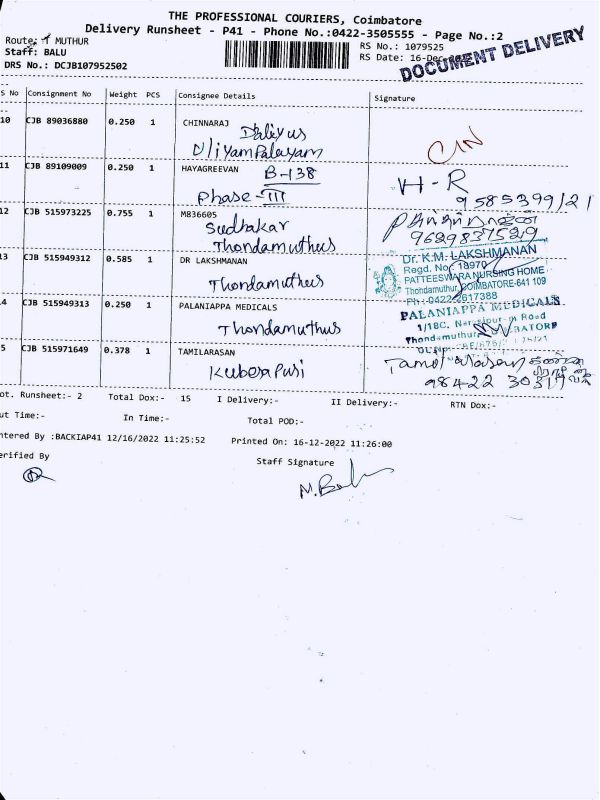 THE PROFESSIONAL COURIERS, Coimbatore
Delivery Runsheet - P41 - Phone No.:0422-3505555 - Page No.:2
Route: T MUTHUR
RS No.: 1079525
Staff: BALU
RS Date: 16-Dec-
DOCUMENT DELIVERY
DRS No.: DCJB107952502
S No Consignment No Weight PCS Consignee Details Signature
10 CJB 89036880 0.250 1 CHINNARAJ
Uliyampalayam
11 CJB 89109009 0.250 1 HAYAGREEVAN B-138
Phase-III
H-R
9585399121
12 CJB 515973225 0.755 1 MB36605
Sudhakar
Thondamuthur
9629837529
13 CJB 515949312 0.585 1 DR LAKSHMANAN
Thondamuthur
Dr. K.M. LAKSHMANAN
Regd. No: 18970
PATTEESWARA NURSING HOME
Thondamuthur, COIMBATORE-641 109
Ph: 0422-2617388
14 CJB 515949313 0.250 1 PALANIAPPA MEDICALS
Thondamuthur
PALANIAPPA MEDICALS
1/18C, Road
Thondamuthur,
15 CJB 515971649 0.378 1 TAMILARASAN
Kuberapuri
98422 30319
Tot. Runsheet:- 2 Total Dox:- 15 I Delivery:- II Delivery:- RTN Dox:-
Out Time:- In Time:- Total POD:-
Entered By :BACKIAP41 12/16/2022 11:25:52 Printed On: 16-12-2022 11:26:00
Verified By Staff Signature